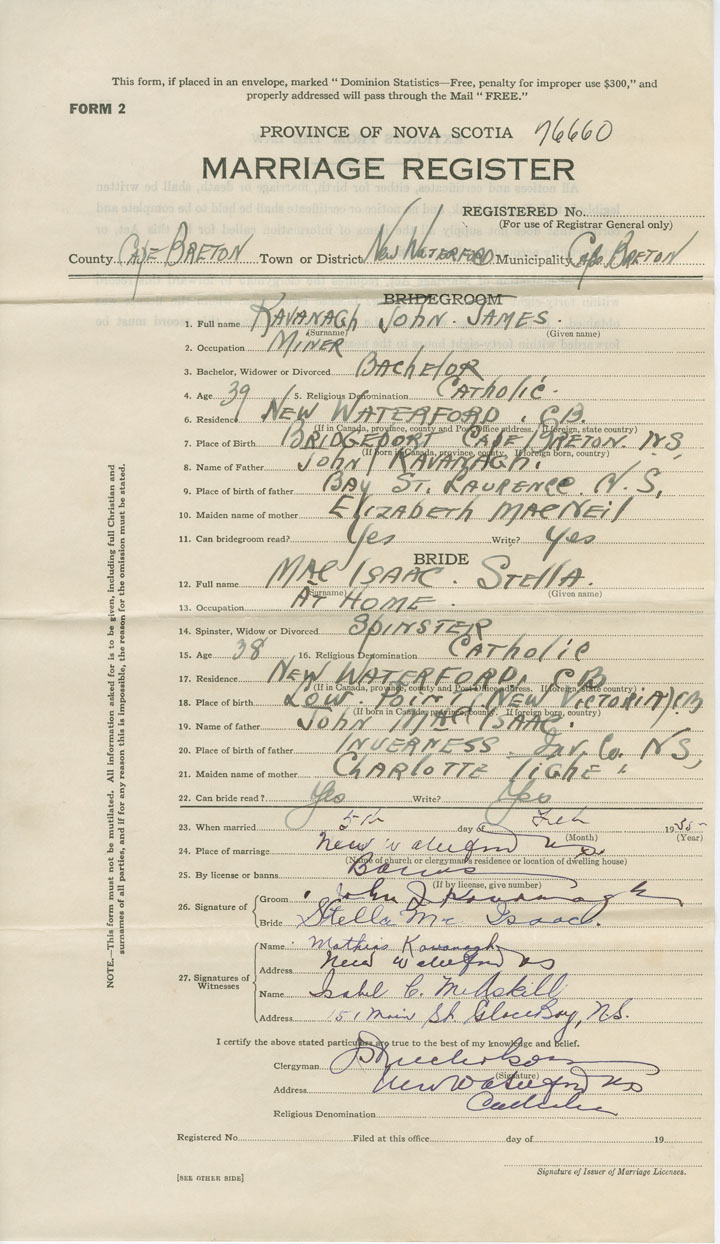 This form, if placed in an envelope, marked "Dominion Statistics—Free, penalty for improper use $300," and
properly addressed will pass through the Mail "FREE."
FORM 2
PROVINCE OF NOVA SCOTIA 76660
MARRIAGE REGISTER
REGISTERED No.
(For use of Registrar General only)
County CAPE BRETON Town or District NEW WATERFORD Municipality Cape BRETON
BRIDEGROOM
1. Full name KAVANAGH JOHN JAMES.
(Surname) (Given name)
2. Occupation MINER
3. Bachelor, Widower or Divorced BACHELOR
4. Age 39 5. Religious Denomination CATHOLIC.
6. Residence NEW WATERFORD, C.B.
(If in Canada, province, county and Post Office address. If foreign, state country)
7. Place of Birth BRIDGEPORT CAPE BRETON. N.S.
(If born in Canada, province, county. If foreign born, country)
8. Name of Father JOHN KAVANAGH.
9. Place of birth of father BAY ST. LAURENCE. N.S.
10. Maiden name of mother ELIZABETH MACNEIL
11. Can bridegroom read? Yes Write? Yes
BRIDE
12. Full name MAC ISAAC. STELLA.
(Surname) (Given name)
13. Occupation AT HOME.
14. Spinster, Widow or Divorced SPINSTER
15. Age 38 16. Religious Denomination CATHOLIC
17. Residence NEW WATERFORD, C.B
(If in Canada, province, county and Post Office address. If foreign, state country)
18. Place of birth LOW. POINT (NEW VICTORIA) CB
(If born in Canada, province, county. If foreign born, country)
19. Name of father JOHN MAC ISAAC.
20. Place of birth of father INVERNESS. Inv. Co. N.S,
21. Maiden name of mother CHARLOTTE TIGHE
22. Can bride read? Yes Write? Yes
23. When married 5th day of Feb 1935
(Month) (Year)
24. Place of marriage New Waterford N.S.
(Name of church or clergyman's residence or location of dwelling house)
25. By license or banns Banns
(If by license, give number)
26. Signature of Groom John J Kavanagh
Bride Stella Mc Isaac.
27. Signatures of Witnesses Name Mathias Kavanagh
Address New Waterford NS
Name Isabel C. McAskill
Address 151 Main St. Glace Bay, N.S.
I certify the above stated particulars are true to the best of my knowledge and belief.
Clergyman Nicholson
(Signature)
Address New Waterford NS
Religious Denomination Catholic
Registered No. Filed at this office day of 19
Signature of Issuer of Marriage Licenses.
[SEE OTHER SIDE]
NOTE.—This form must not be mutilated. All information asked for is to be given, including full Christian and
surnames of all parties, and if for any reason this is impossible, the reason for the omission must be stated.